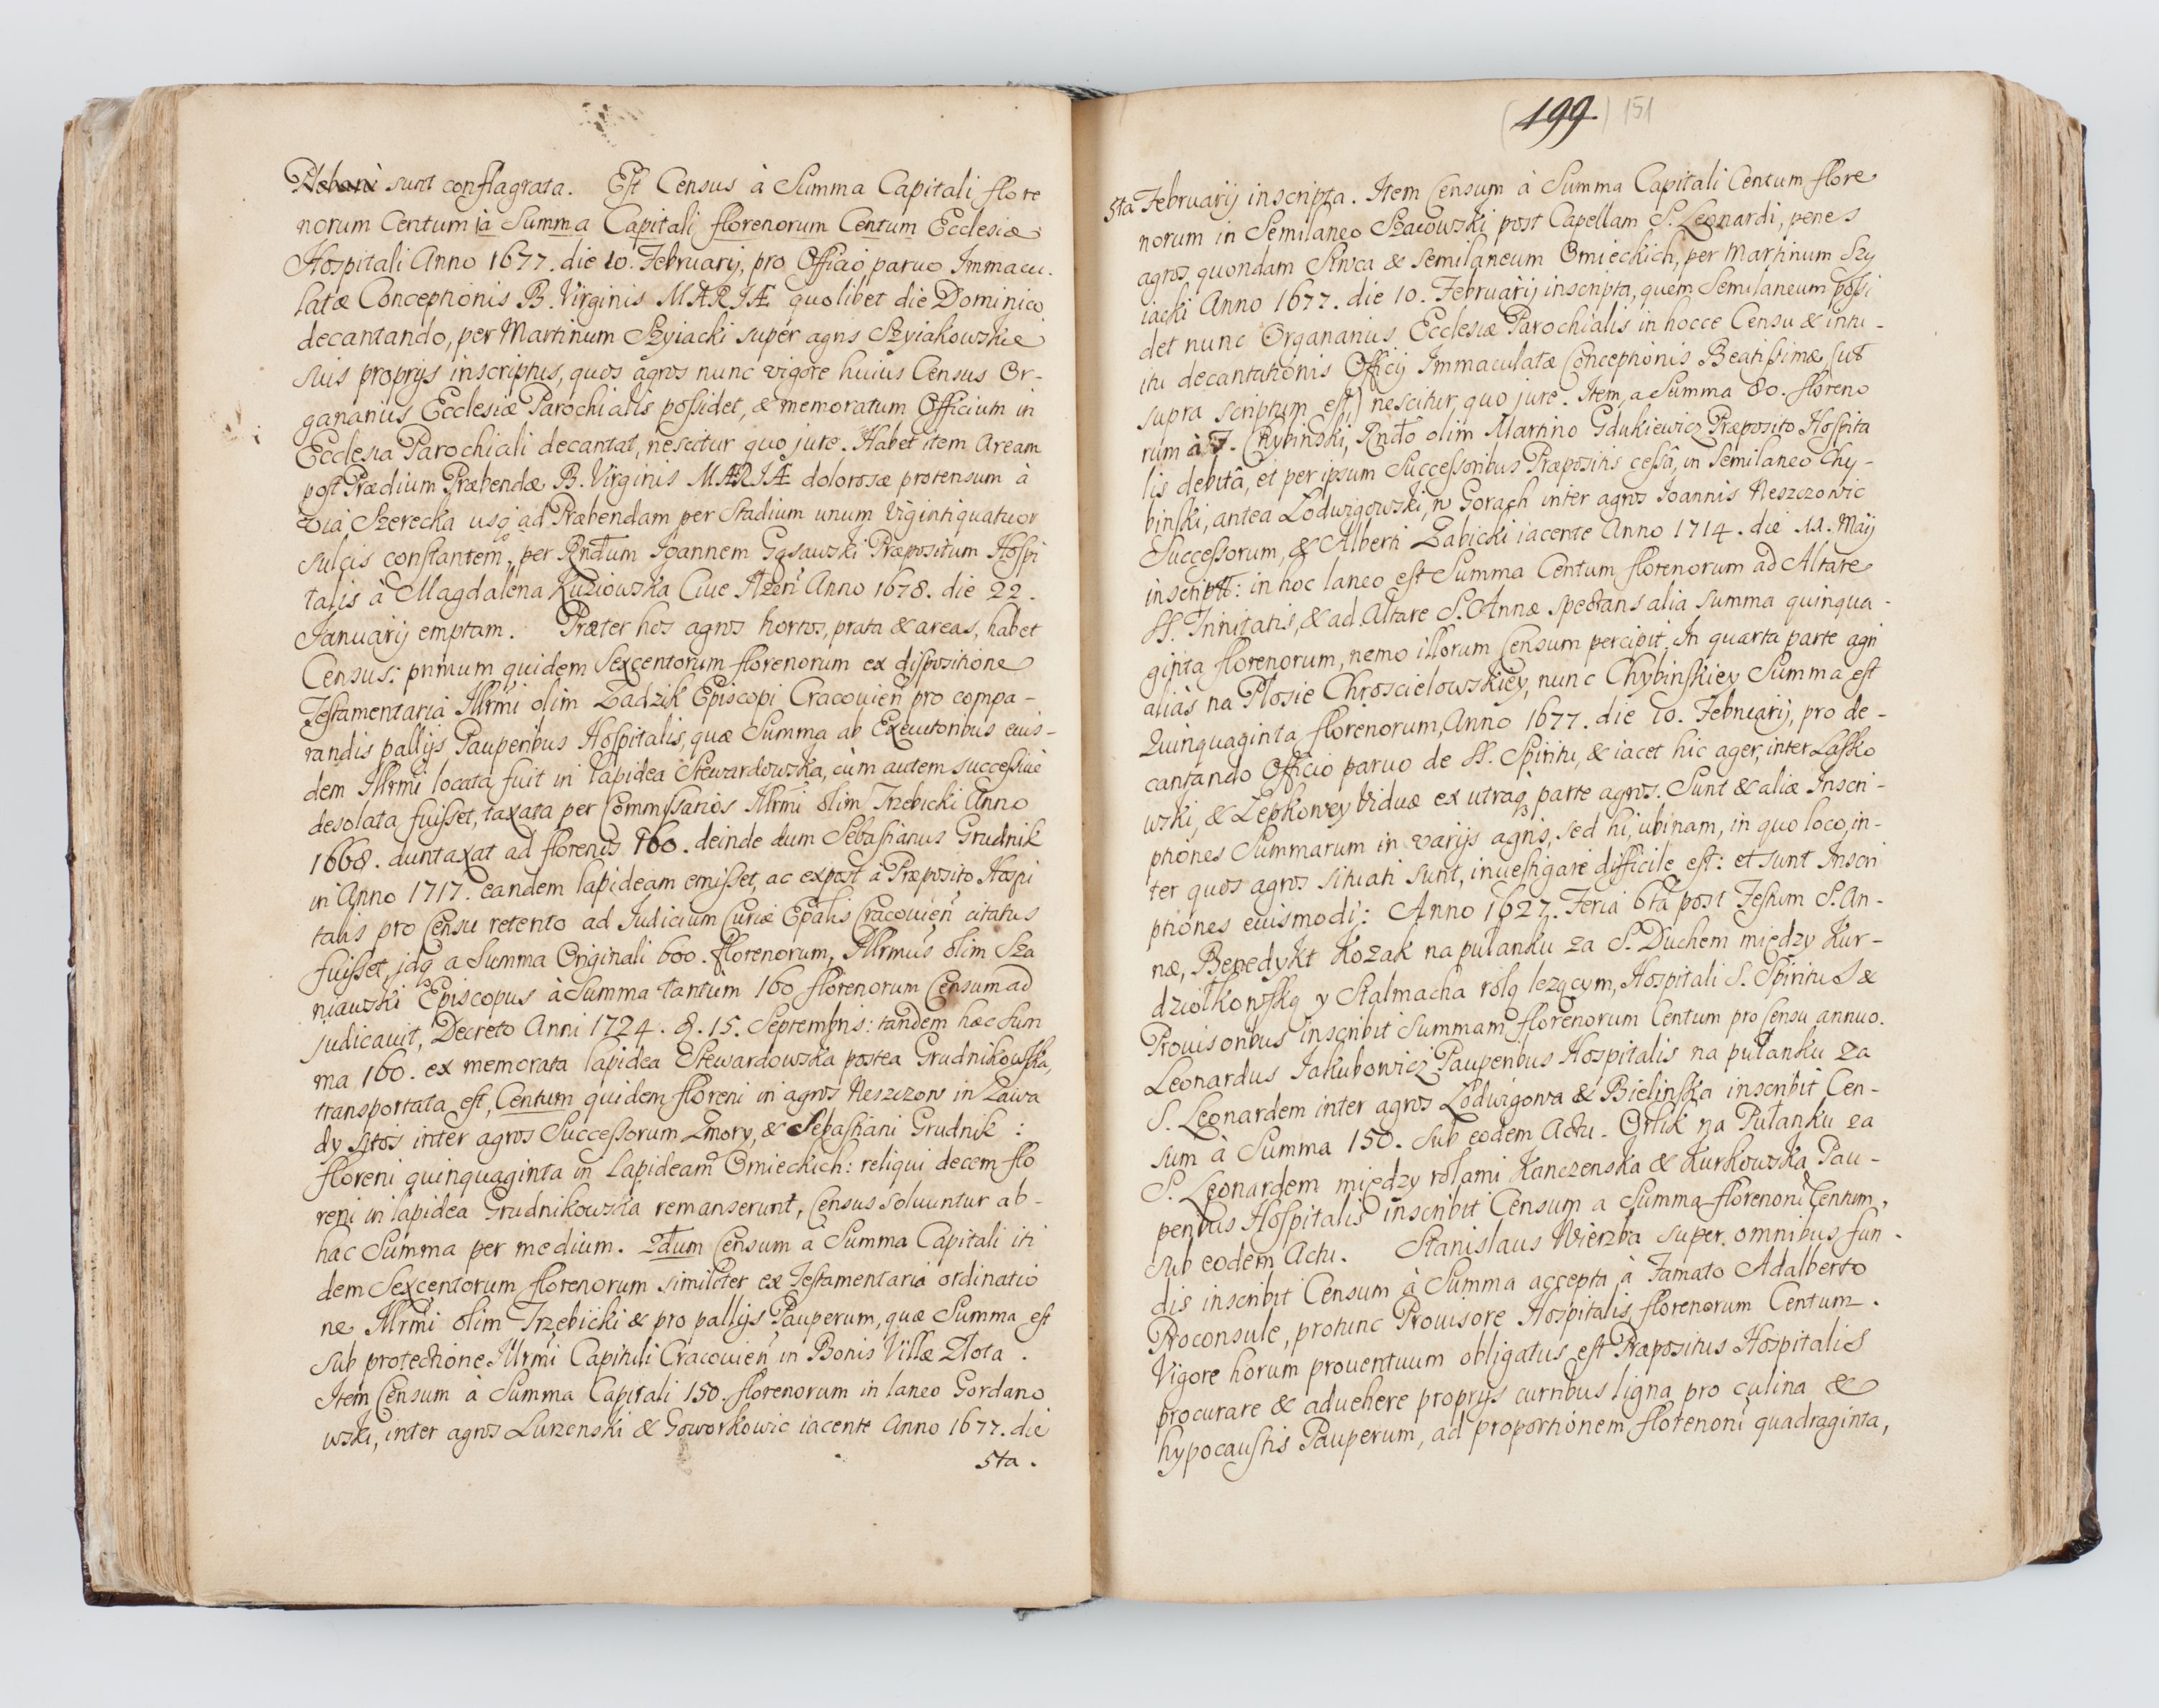 Plebani sunt conflagrata. Est Census à Summa Capitali flore
norum Centum à Summa Capitali florenorum Centum Ecclesiæ
Hospitali Anno 1677. die 10. Februarij, pro Officio paruo Immacu-
latæ Conceptionis B. Virginis MARIÆ quolibet die Dominico
decantando, per Martinum Szyiacki super agris Szyiakowskie
suis proprijs inscriptus, quos agros nunc vigore huius Census Or-
ganarius Ecclesiæ Parochialis possidet, & memoratum Officium in
Ecclesia Parochiali decantat, nescitur quo jure. Habet item Aream
post Prædium Præbendæ B. Virginis MARIÆ dolorosæ protensum à
via Szerecka usq ad Præbendam per Stadium unum viginti quatuor
sulcis constantem, per Rndum Joannem Gąsawski Præpositum Hospi
talis à Magdalena Kuziowska Ciue Ilzen Anno 1678. die 22.
Januarij emptam. Præter hos agros hortos, prata & areas, habet
Census: primum quidem Sexcentorum florenorum ex dispositione
Testamentaria Illrmi olim Zadzik Episcopi Cracouien pro compa-
randis pallijs Pauperibus Hospitalis, quæ Summa ab Executoribus eius-
dem Illrmi locata fuit in lapidea Stewardowska, cùm autem successiuè
desolata fuisset, taxata per Commissarios Illrmi olim Trzebicki Anno
1668. duntaxat ad florenos 160. deinde dum Sebastianus Grudnik
in Anno 1717. eandem lapideam emisset, ac expost a Præposito Hospi
talis pro Censu retento ad Judicium Curiæ Epalis Cracouien citatus
fuisset, idq a Summa Originali 600. florenorum, Illrmus olim Sza
niawski Episcopus à Summa tantùm 160 florenorum Censum ad
judicauit, Decreto Anni 1724. d. 15. Septembris: tandem hæc Sum
ma 160. ex memorata lapidea Stewardowska postea Grudnikowska,
transportata est, Centum quidem floreni in agros Neszczow in Zawa
dy sitos inter agros Successorum Zmory, & Sebastiani Grudnik:
floreni quinquaginta in Lapideam Omieckich: reliqui decem flo
reni in lapidea Grudnikowska remanserunt, Census soluuntur ab-
hac Summa per medium. 2dum Censum à Summa Capitali iti
dem Sexcentorum florenorum similiter ex Testamentaria ordinatio
ne Illrmi olim Trzebicki & pro pallijs Pauperum, quæ Summa est
sub protectione Illrmi Capituli Cracouien in Bonis Villæ Złota.
Item Censum à Summa Capitali 150. florenorum in laneo Gordano
wski, inter agros Lurzenski & Goworkowic iacente Anno 1677. die
5ta.
(199) 151
5ta Februarij inscripta. Item Censum à Summa Capitali Centum flore
norum in Semilaneo Szacowski post Capellam S. Leonardi, penes
agros quondam & Semilaneum Omieckich, per Martinum Szy
iacki Anno 1677. die 10. Februarij inscripta, quem Semilaneum possi
det nunc Organarius Ecclesiæ Parochialis in hocce Censu & intu-
itu decantationis Officij Immaculatæ Conceptionis Beatissimæ (ut
supra scriptum est) nescitur quo jure. Item, a Summa 80. floreno
rum à J. Chybinski, Rndo olim Martino Gdukiewicz Præposito Hospita
lis debitâ, et per ipsum Successoribus Præpositis cessâ, in Semilaneo Chy-
binski, antea Lodwigowski, w Gorach inter agros Joannis Neszczowic
Successorum, & Alberti Zabicki iacente Anno 1714. die 11. Maij
inscript: in hoc laneo est Summa Centum florenorum ad Altare
SS. Trinitatis, & ad Altare S. Annæ spectans alia summa quinqua-
ginta florenorum, nemo illorum Censum percipit. In quarta parte agri
aliàs na Płosie Chroscielowskiey, nunc Chybinskiey Summa est
Quinquaginta florenorum, Anno 1677. die 10. Februarij, pro de-
cantando Officio paruo de SS. Spiritu, & iacet hic ager, inter Lasko
wski, & Lepkowey viduæ ex utraq parte agros. Sunt & aliæ Inscri-
ptiones Summarum in varijs agris, sed hi, ubinam, in quo loco, in-
ter quos agros situati sunt, inuestigare difficile est: et sunt Inscri
ptiones euismodi: Anno 1627. Feria 6ta post Festum S. An-
næ, Benedykt Kozak na pułanku za S. Duchem między Kur-
dziołkowską y Stalmacha rolą lezącym, Hospitali S. Spiritus &
Prouisoribus inscribit Summam florenorum Centum pro Censu annuo.
Leonardus Jakubowicz Pauperibus Hospitalis na pułanku za
S. Leonardem inter agros Lodwigowa & Bielinska inscribit Cen-
sum à Summa 150. sub eodem Actu. Orlik na Pułanku za
S. Leonardem między rolami Kanczenska & Kurkowska Pau-
peribus Hospitalis inscribit Censum a Summa florenorũ Centum,
sub eodem Actu. Stanislaus Wierzba super omnibus fun-
dis inscribit Censum à Summa accepta à Famato Adalberto
Proconsule, protunc Prouisore Hospitalis florenorum Centum.
Vigore horum prouentuum obligatus est Præpositus Hospitalis
procurare & aduehere proprijs curribus ligna pro culina &
hypocaustis Pauperum, ad proportionem florenorũ quadraginta,